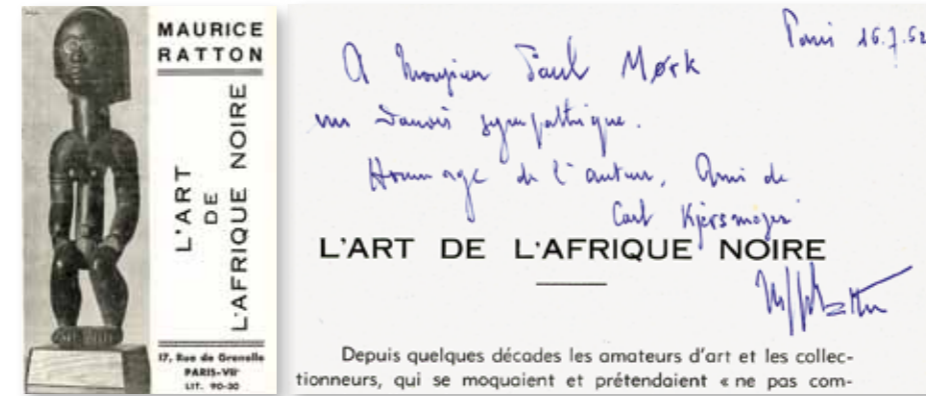 MAURICE
RATTON
L'ART
DE
L'AFRIQUE NOIRE
17, Rue de Grenelle
PARIS-VIIᵉ
LIT. 90-30
Paris 16.7.52
A Monsieur Paul Mørk
un Danois sympathique.
Hommage de l'auteur, Ami de
Carl Kjersmeier
L'ART DE L'AFRIQUE NOIRE
Depuis quelques décades les amateurs d'art et les collec-
tionneurs, qui se moquaient et prétendaient « ne pas com-